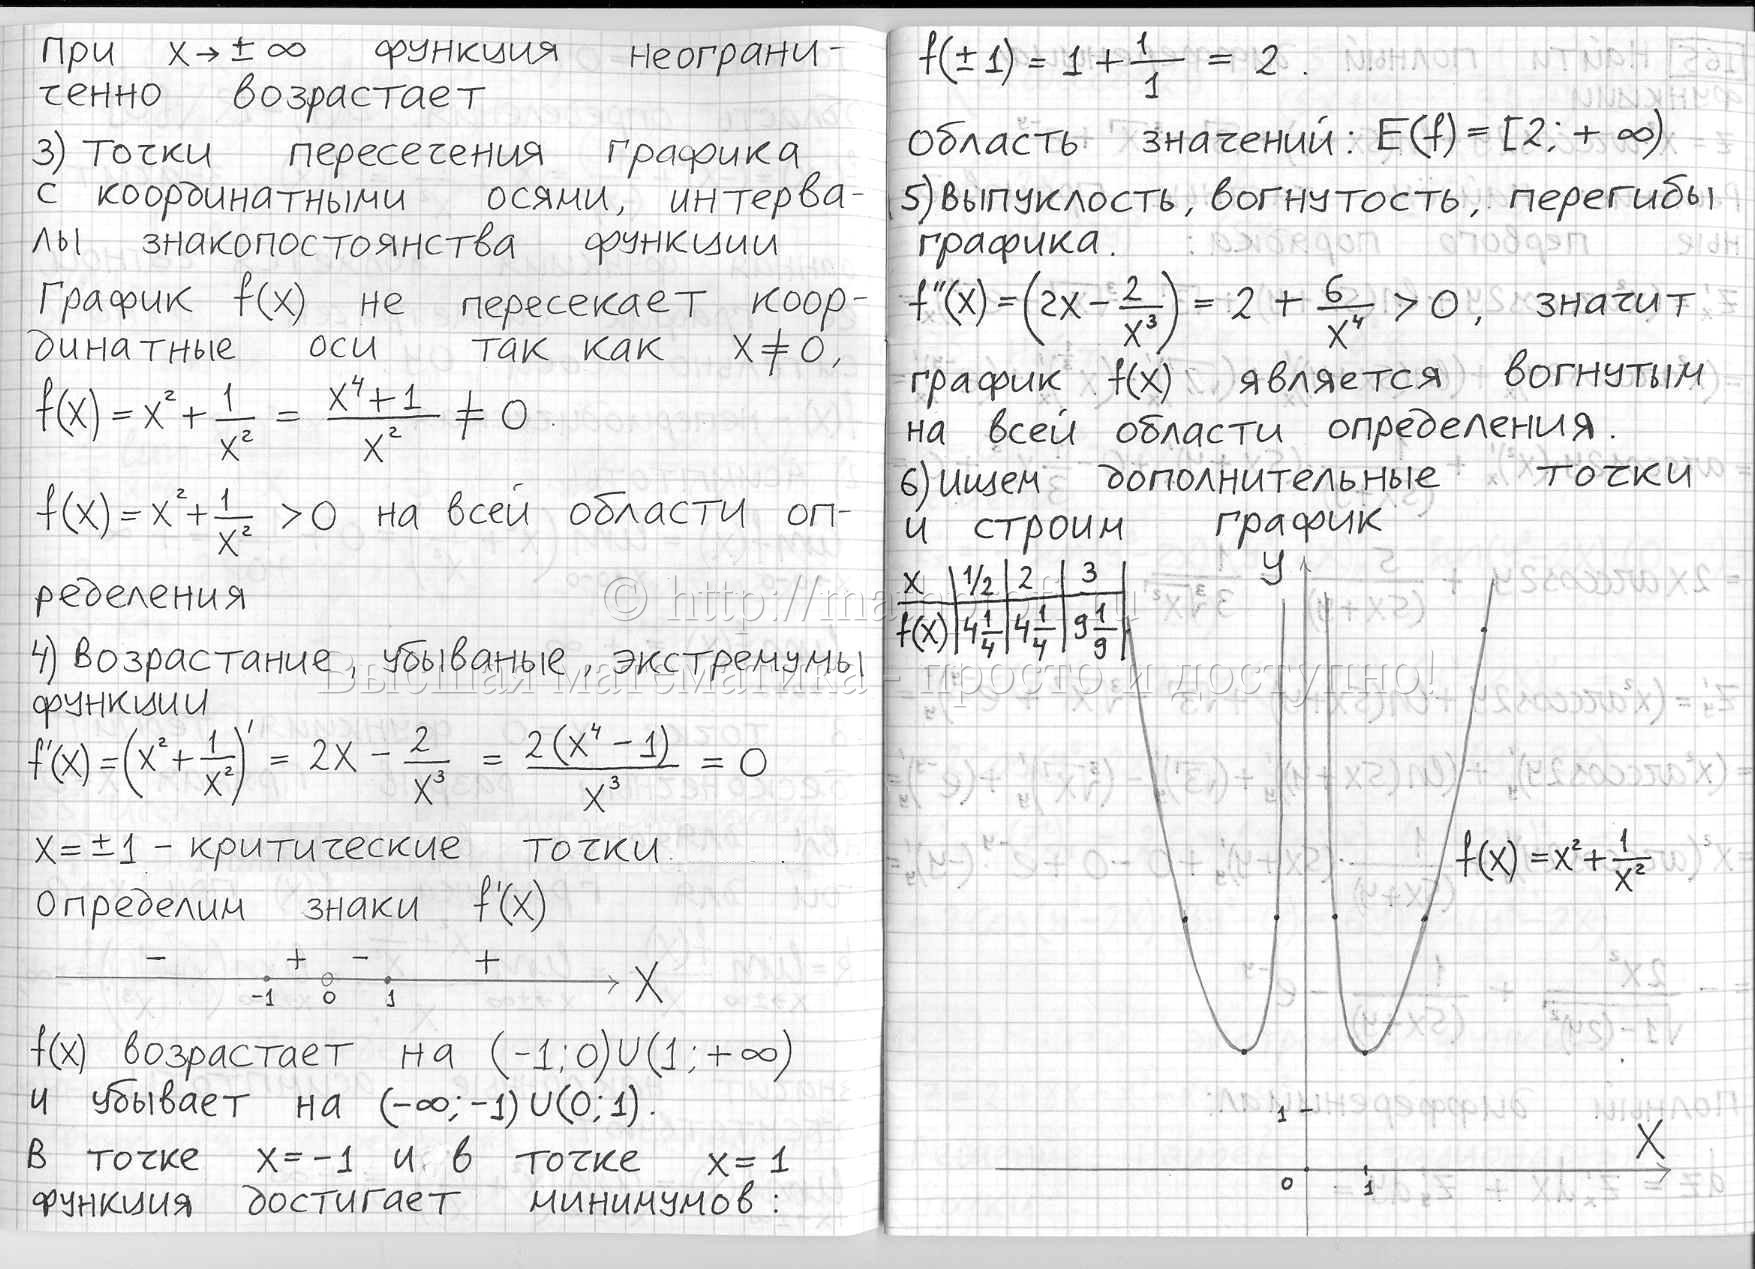 При x→±∞ функция неограни-
ченно возрастает
3) Точки пересечения графика
с координатными осями, интерва-
лы знакопостоянства функции
График f(x) не пересекает коор-
динатные оси так как x≠0,
f(x) = x² + 1/x² = (x⁴+1)/x² ≠ 0.
f(x) = x² + 1/x² > 0 на всей области оп-
ределения
4) Возрастание, убываные, экстремумы
функции
f'(x) = (x² + 1/x²)' = 2x − 2/x³ = 2(x⁴ − 1)/x³ = 0
x = ±1 – критические точки
Определим знаки f'(x)
− + − +
-1 0 1 X
f(x) возрастает на (-1; 0)∪(1; +∞)
и убывает на (-∞; -1)∪(0; 1).
В точке x = -1 и в точке x = 1
функция достигает минимумов:
f(±1) = 1 + 1/1 = 2.
область значений: E(f) = [2; +∞)
5) Выпуклость, вогнутость, перегибы
графика.
f''(x) = (2x − 2/x³)' = 2 + 6/x⁴ > 0, значит
график f(x) является вогнутым
на всей области определения.
6) Ищем дополнительные точки
и строим график
x | 1/2 | 2 | 3
f(x) | 4 1/4 | 4 1/4 | 9 1/9
y
f(x) = x² + 1/x²
1
X
0 1
© http://mathprofi.ru
Высшая математика - просто и доступно!